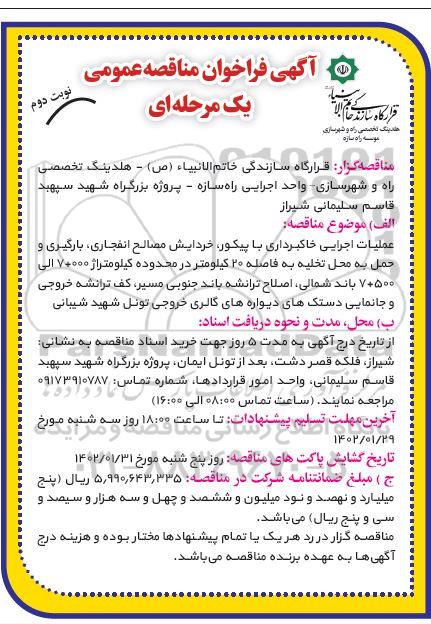 آگهی فراخوان مناقصه عمومی
یک مرحله‌ای
نوبت دوم
قرارگاه سازندگی خاتم الانبیاء
هلدینگ تخصصی راه و شهرسازی
موسسه راه سازه
مناقصه‌گزار: قرارگاه سازندگی خاتم‌الانبیاء (ص) - هلدینگ تخصصی
راه و شهرسازی- واحد اجرایی راه‌سازه - پروژه بزرگراه شهید سپهبد
قاسم سلیمانی شیراز
الف) موضوع مناقصه:
عملیات اجرایی خاکبرداری با پیکور، خردایش مصالح انفجاری، بارگیری و
حمل به محل تخلیه به فاصله ۲۰ کیلومتر در محدوده کیلومتراژ ۰۰۰+۷ الی
۵۰۰+۷ باند شمالی، اصلاح ترانشه باند جنوبی مسیر، کف ترانشه خروجی
و جانمایی دستک های دیواره های گالری خروجی تونل شهید شیبانی
ب) محل، مدت و نحوه دریافت اسناد:
از تاریخ درج آگهی به مدت ۵ روز جهت خرید اسناد مناقصه به نشانی:
شیراز، فلکه قصر دشت، بعد از تونل ایمان، پروژه بزرگراه شهید سپهبد
قاسم سلیمانی، واحد امور قراردادها، شماره تماس: ۰۹۱۷۳۹۱۰۷۸۷
مراجعه نمایند. (ساعت تماس ۰۸:۰۰ الی ۱۶:۰۰)
آخرین مهلت تسلیم پیشنهادات: تا ساعت ۱۸:۰۰ روز سه شنبه مورخ
۱۴۰۲/۰۱/۲۹
تاریخ گشایش پاکت های مناقصه: روز پنج شنبه مورخ ۱۴۰۲/۰۱/۳۱
ج ) مبلغ ضمانتنامه شرکت در مناقصه: ۵,۹۹۰,۶۴۳,۳۳۵ ریال (پنج
میلیارد و نهصد و نود میلیون و ششصد و چهل و سه هزار و سیصد و
سی و پنج ریال) می‌باشد.
مناقصه گزار در رد هر یک یا تمام پیشنهادها مختار بوده و هزینه درج
آگهی‌ها به عهده برنده مناقصه می‌باشد.